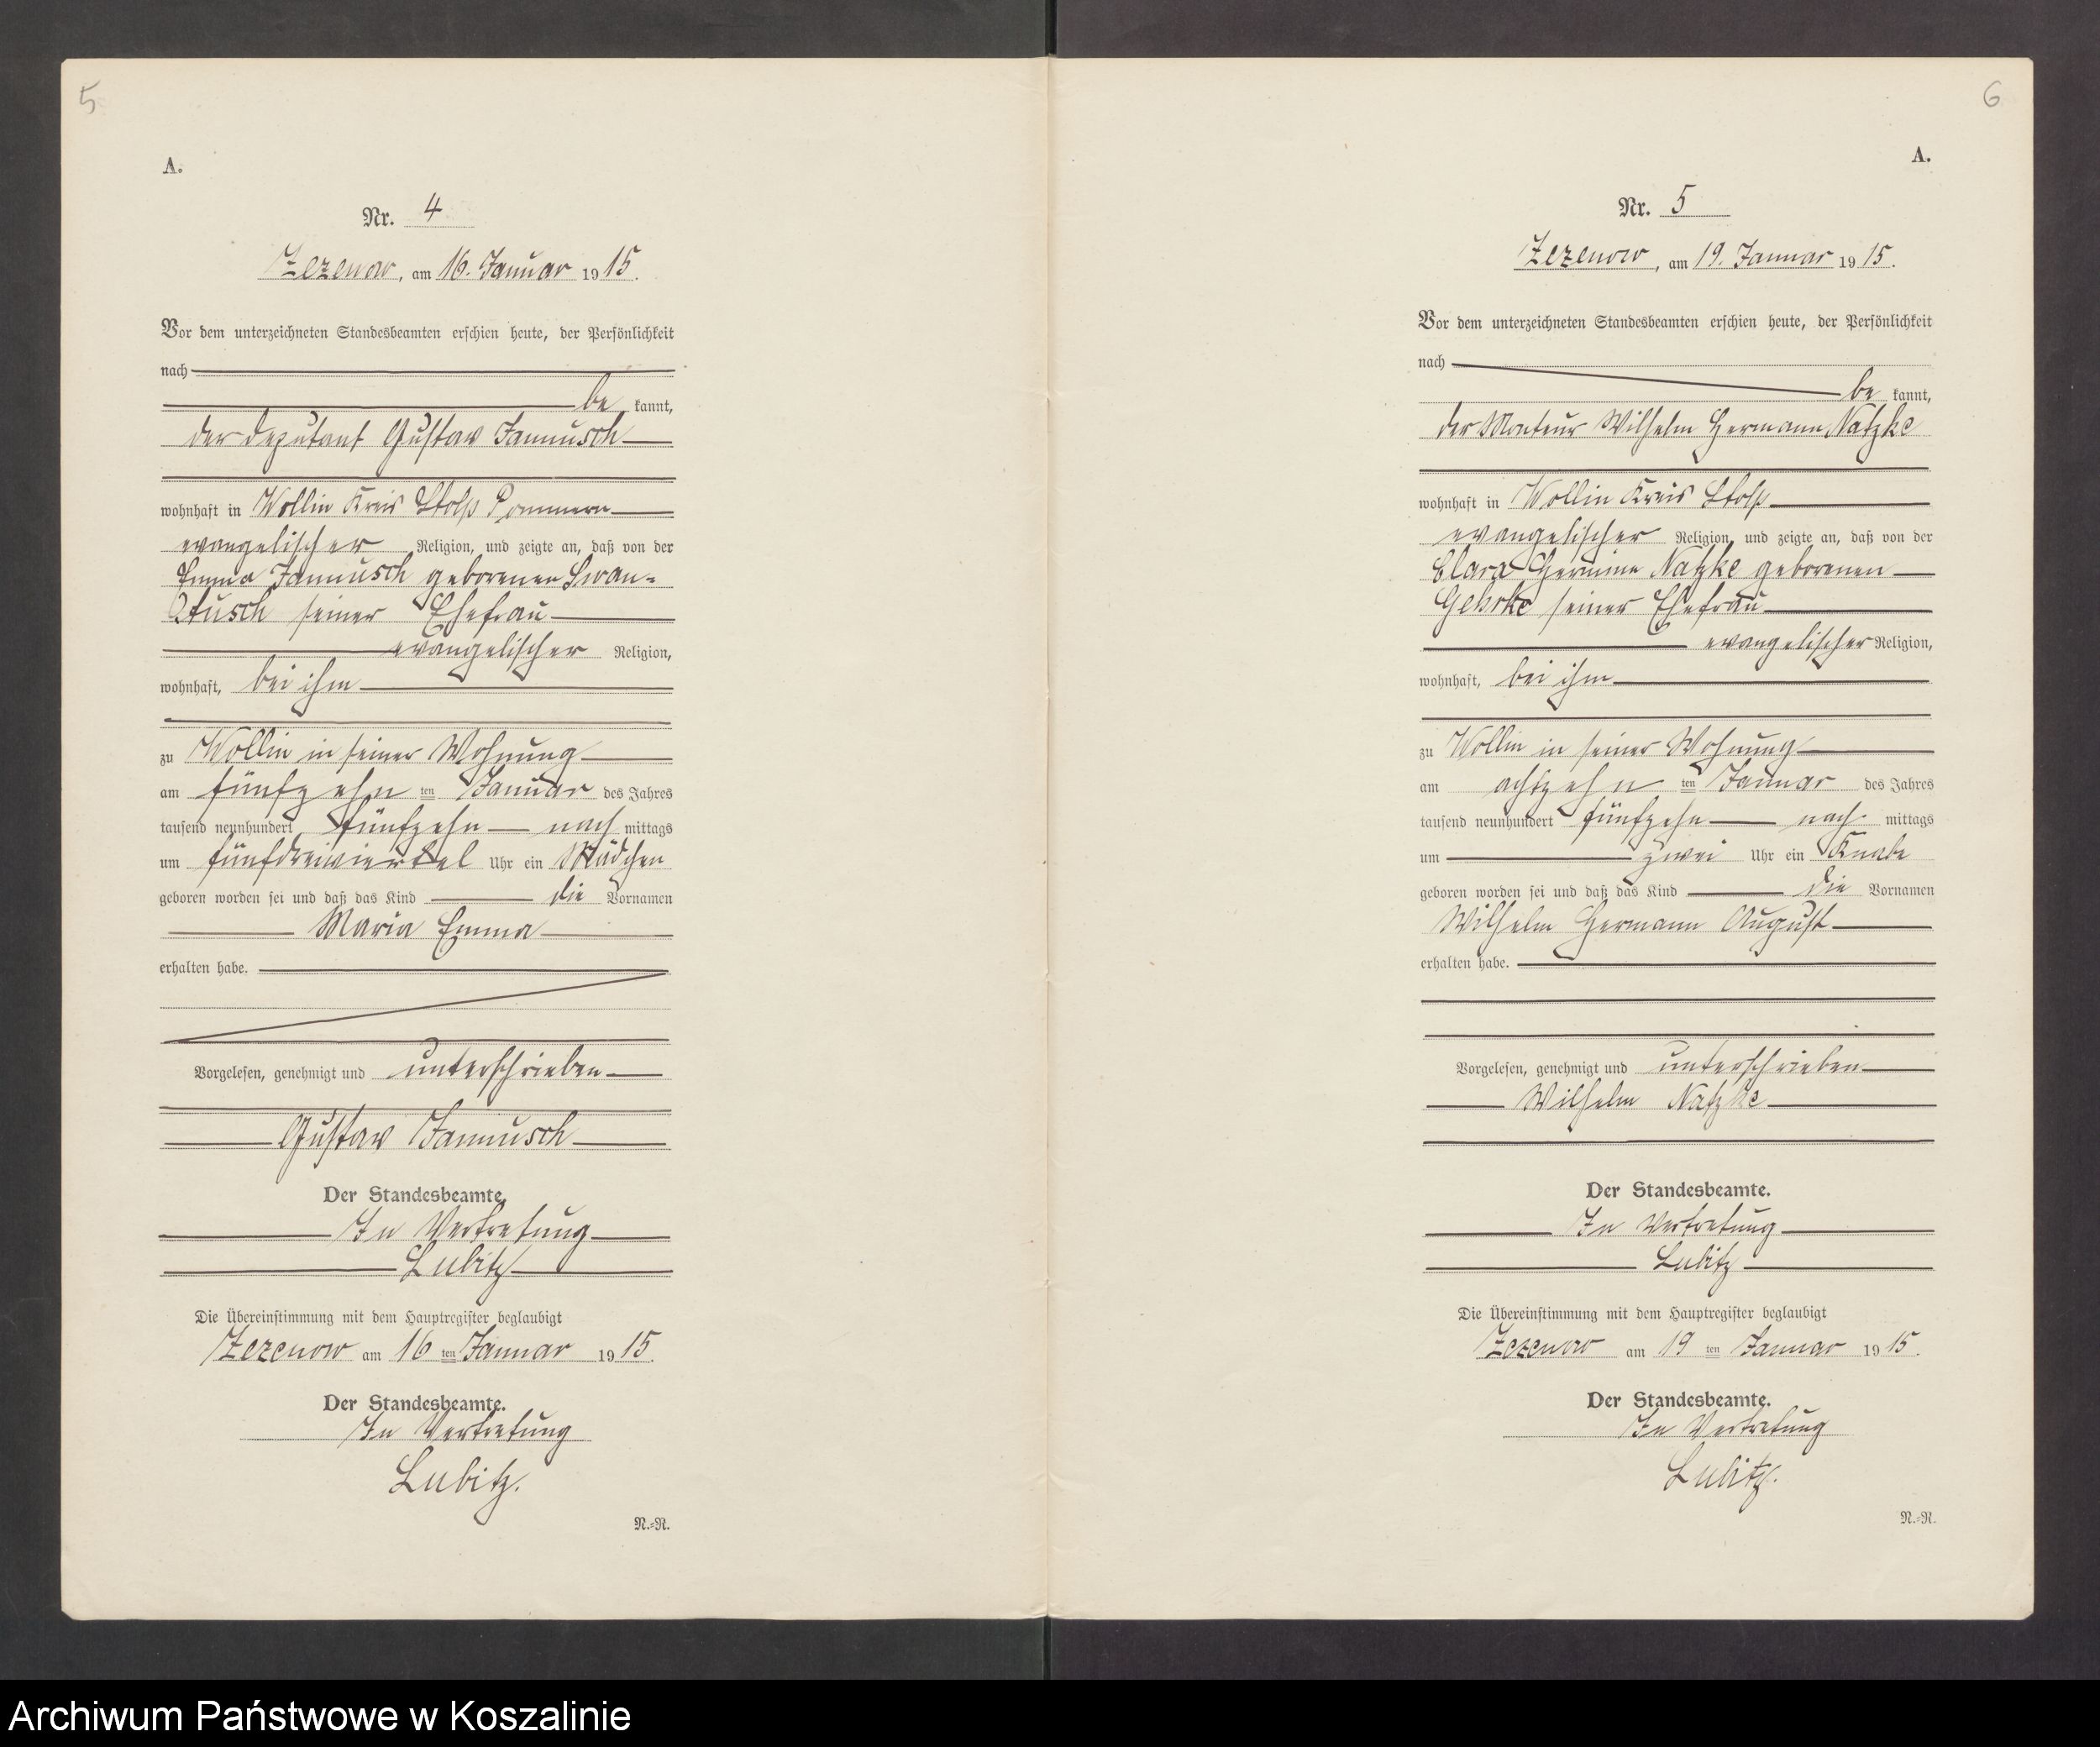 5
A.
Nr. 4
Zezenow, am 16. Januar 1915.
Vor dem unterzeichneten Standesbeamten erschien heute, der Persönlichkeit
nach
be kannt,
der Deputant Gustav Jannusch
wohnhaft in Wollin Kreis Stolp Pommern
evangelischer Religion, und zeigte an, daß von der
Emma Jannusch geborenen Swan-
tusch seiner Ehefrau
evangelischer Religion,
wohnhaft, bei ihm
zu Wollin in seiner Wohnung
am fünfzehn ten Januar des Jahres
tausend neunhundert fünfzehn nach mittags
um fünfdreiviertel Uhr ein Mädchen
geboren worden sei und daß das Kind die Vornamen
Maria Emma
erhalten habe.
Vorgelesen, genehmigt und unterschrieben
Gustav Jannusch
Der Standesbeamte.
In Vertretung
Lubitz
Die Übereinstimmung mit dem Hauptregister beglaubigt
Zezenow am 16 ten Januar 1915.
Der Standesbeamte.
In Vertretung
Lubitz.
N.=R.
6
A.
Nr. 5
Zezenow, am 19. Januar 1915.
Vor dem unterzeichneten Standesbeamten erschien heute, der Persönlichkeit
nach
be kannt,
der Monteur Wilhelm Hermann Natzke
wohnhaft in Wollin Kreis Stolp
evangelischer Religion, und zeigte an, daß von der
Clara Hermine Natzke geborenen
Gehrke seiner Ehefrau
evangelischer Religion,
wohnhaft, bei ihm
zu Wollin in seiner Wohnung
am achtzehn ten Januar des Jahres
tausend neunhundert fünfzehn nach mittags
um zwei Uhr ein Knabe
geboren worden sei und daß das Kind die Vornamen
Wilhelm Hermann August
erhalten habe.
Vorgelesen, genehmigt und unterschrieben
Wilhelm Natzke
Der Standesbeamte.
In Vertretung
Lubitz
Die Übereinstimmung mit dem Hauptregister beglaubigt
Zezenow am 19 ten Januar 1915.
Der Standesbeamte.
In Vertretung
Lubitz.
N.=R.
Archiwum Państwowe w Koszalinie